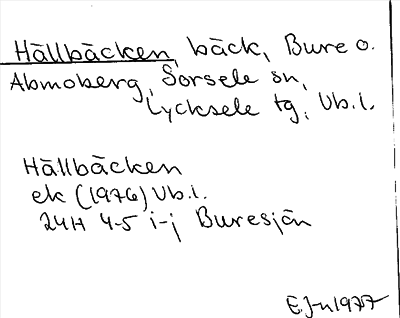 Hällbäcken, bäck, Bure o.
Abmoberg, Sorsele sn,
Lycksele tg, Vb.l.
Hällbäcken
ek (1976) Vb.l.
24H 4-5 i-j Buresjön
EJ-n 1977